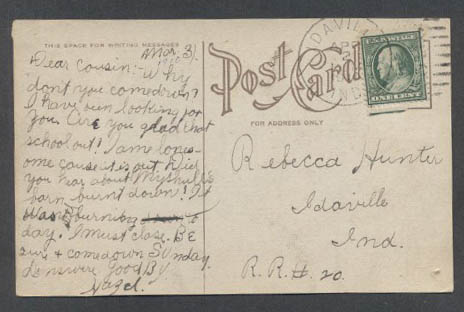 THIS SPACE FOR WRITING MESSAGES
Mar. 31
Dear Cousin:- Why
don't you comedown?
I have ben looking for
you. Are you glad that
school out? I ame lones-
ome cause it is out. Did
you hear about
barn burnt down? It
was burning to
day. I must close. BE
sure & comedown SUnday.
Good By
Hazel.
Post Card
FOR ADDRESS ONLY
IDAVILLE
IND
U.S. POSTAGE
ONE CENT
Rebecca Hunter
Idaville
Ind.
R.R.# 20.